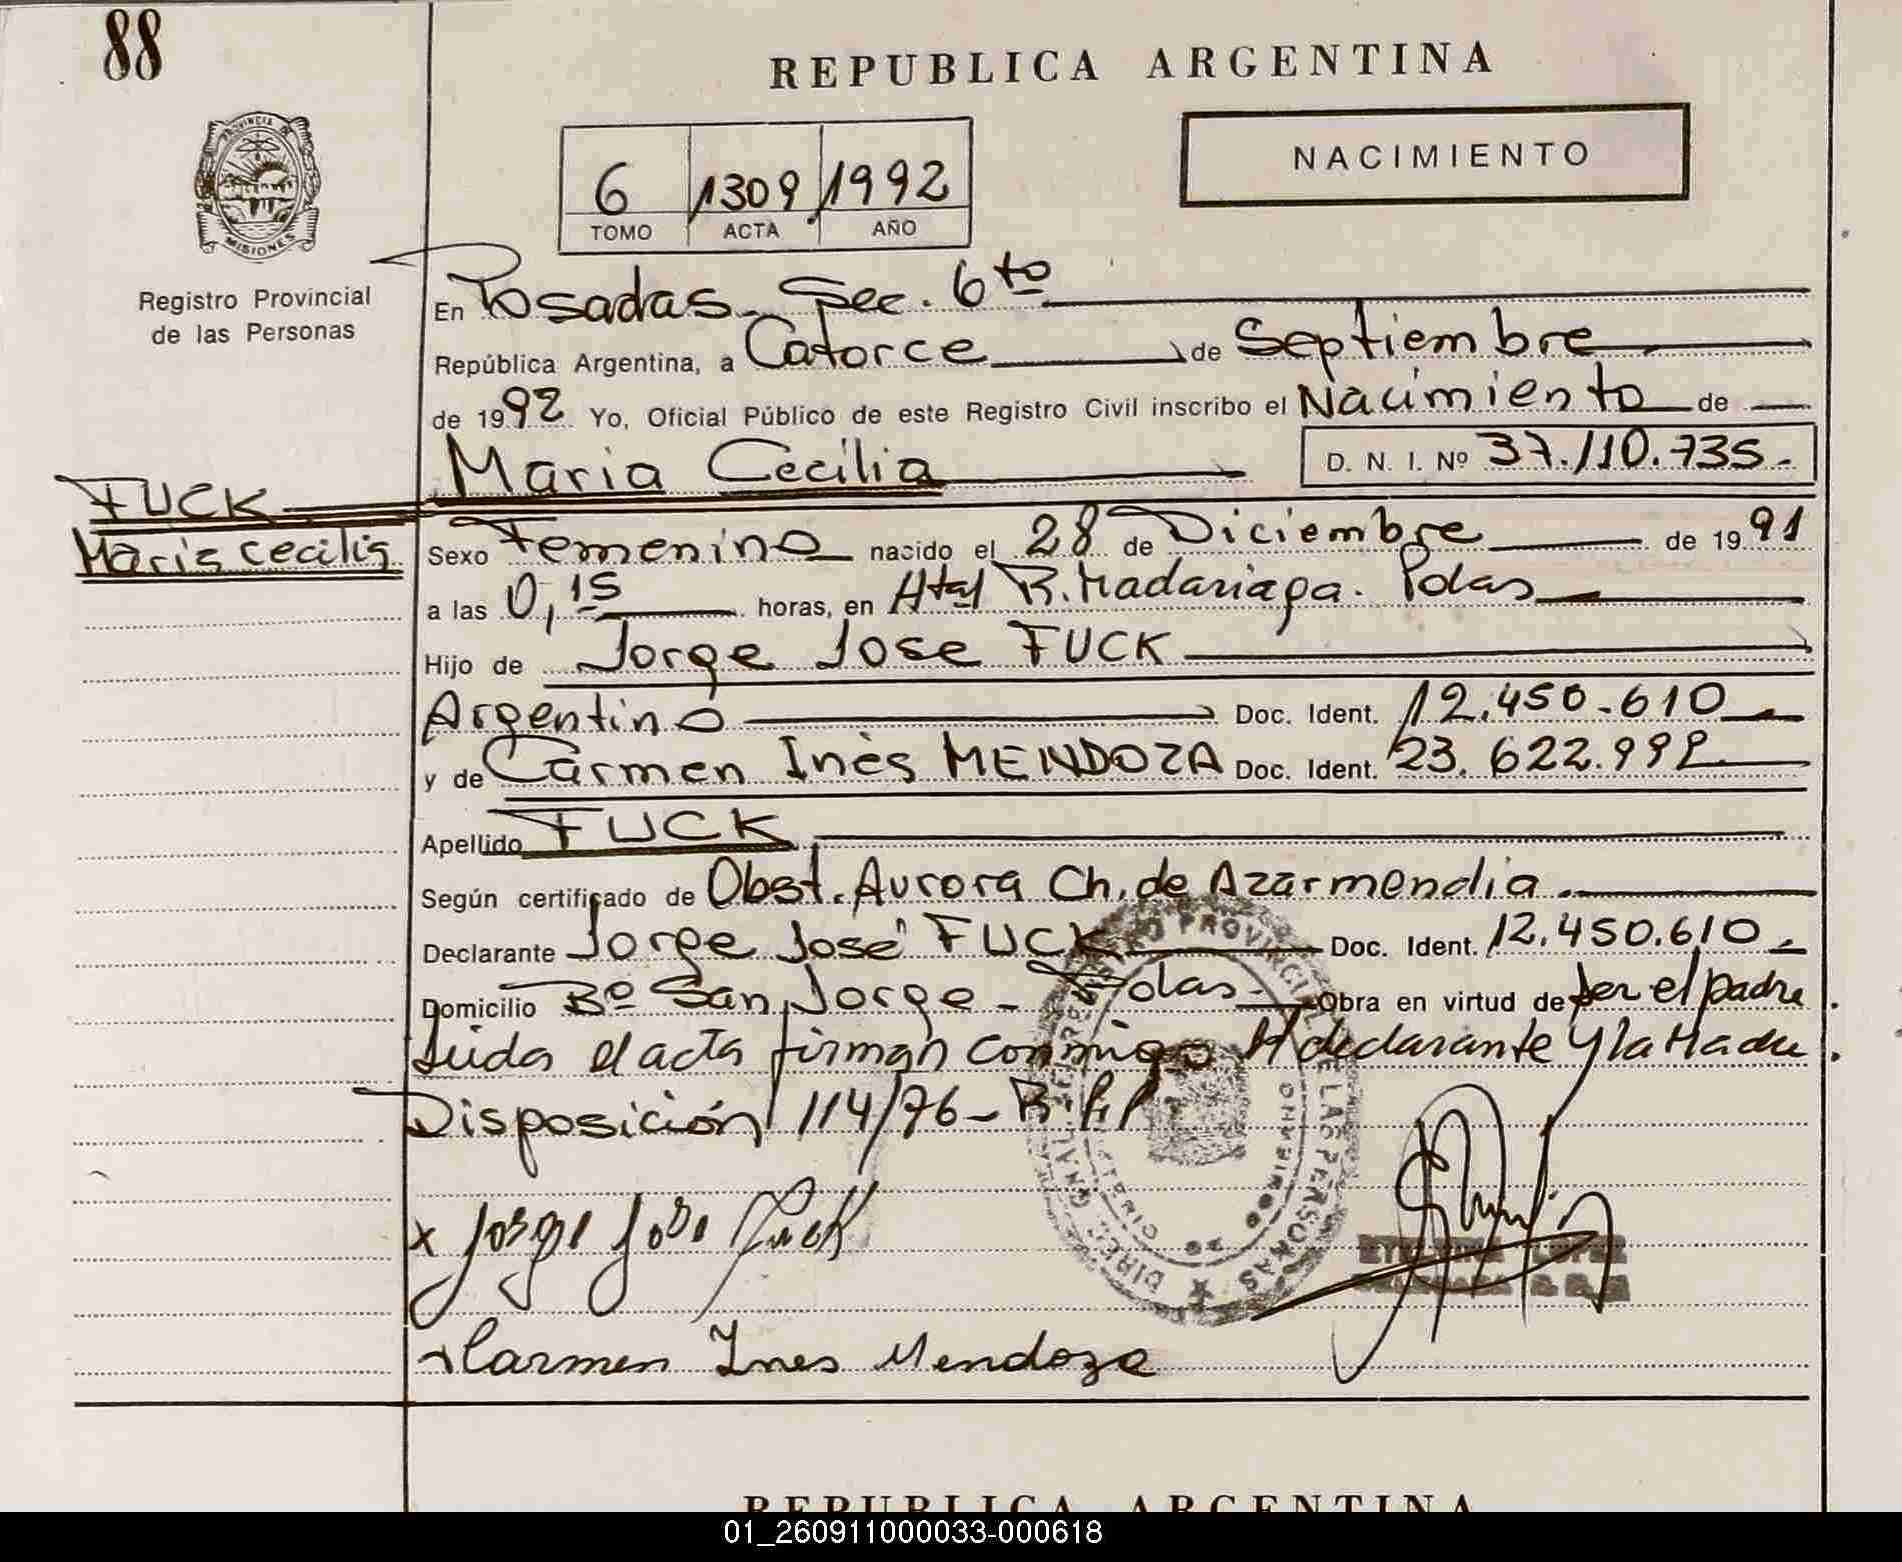 88
REPUBLICA ARGENTINA
NACIMIENTO
6 1309 1992
TOMO ACTA AÑO
PROVINCIA DE
MISIONES
Registro Provincial
de las Personas
En Posadas - Sec. 6to
República Argentina, a Catorce de Septiembre
de 1992 Yo, Oficial Público de este Registro Civil inscribo el Nacimiento de
Maria Cecilia D. N. I. Nº 37.110.735.-
FUCK
Maria Cecilia
Sexo Femenino nacido el 28 de Diciembre de 1991
a las 0,15 horas, en Htal R. Madariaga. Pdas
Hijo de Jorge Jose FUCK
Argentino Doc. Ident. 12.450.610
y de Carmen Inés MENDOZA Doc. Ident. 23.622.992
Apellido FUCK
Según certificado de Obst. Aurora Ch. de Azarmendia.
Declarante Jorge José FUCK Doc. Ident. 12.450.610-
Domicilio Bº San Jorge - Pdas- Obra en virtud de ser el padre.
Leida el acta firman conmigo el declarante y la Madre.
Disposición 114/76- R.P.P.
x Jorge Jose Fuck
LOPEZ
PROVINCIAL DE LAS PERSONAS
x Carmen Ines Mendoza
REPUBLICA ARGENTINA
01_260911000033-000618